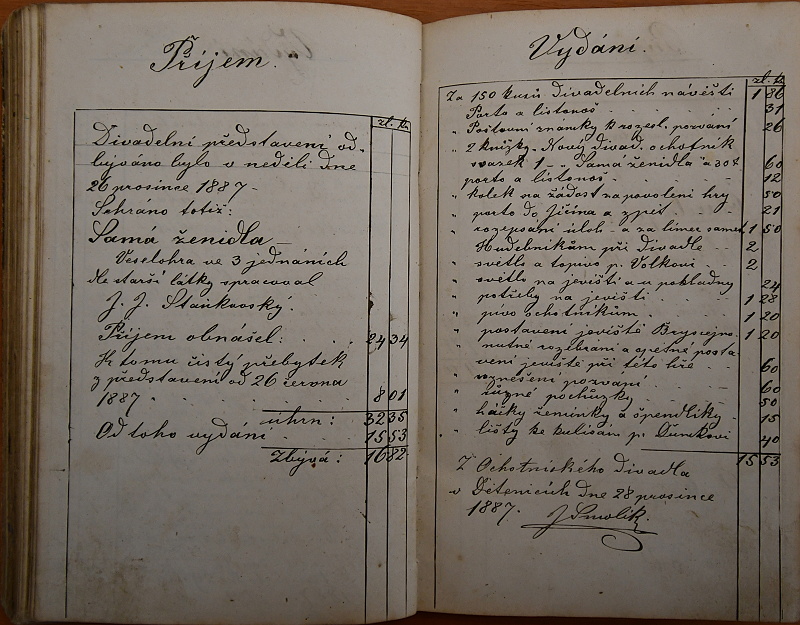 Příjem.
zl. kr.
Divadelní představení od-
býváno bylo v neděli dne
26 prosince 1887 -
Sehráno totiž:
Samá ženidla -
Veselohra ve 3 jednáních
dle starší látky spracoval
J. J. Staňkovský.
Příjem obnášel: 24 34
K tomu čistý přebytek
z představení od 26 června
1887 8 01
úhrn: 32 35
Od toho vydání 15 53
Zbývá: 16 82
Vydání.
zl. kr.
Za 150 kusů Divadelních návěští 1 86
Porto a listonoš 31
" Poštovní známky k rozesl. pozvání 26
" 2 knížky. Nový divad. ochotník
svazek 1 - "Samá ženidla" a 30t 60
porto a listonoš 12
" kolek na žádost za povolení hry 50
" porto do Jičína a zpět 21
" rozepsání úloh - a za límec samet 1 50
" Hudebníkům při Divadle 2
" světlo a topivo p. Volkovi 2
" světlo na jevišti a u pokladny 24
" potřeby na jevišti 1 28
" pivo ochotníkům 1 20
" postavení jeviště 1 20
" nutné rozebrání a opětné posta-
vení jeviště při této hře 60
" roznešení pozvání 60
" různé pochůzky 50
" háčky ženinky a špendlíky 15
" lišty ke kulisám p. Dunkovi 40
15 53
Z Ochotnického Divadla
v Dětenicích dne 28 prosince
1887. J Smolík.